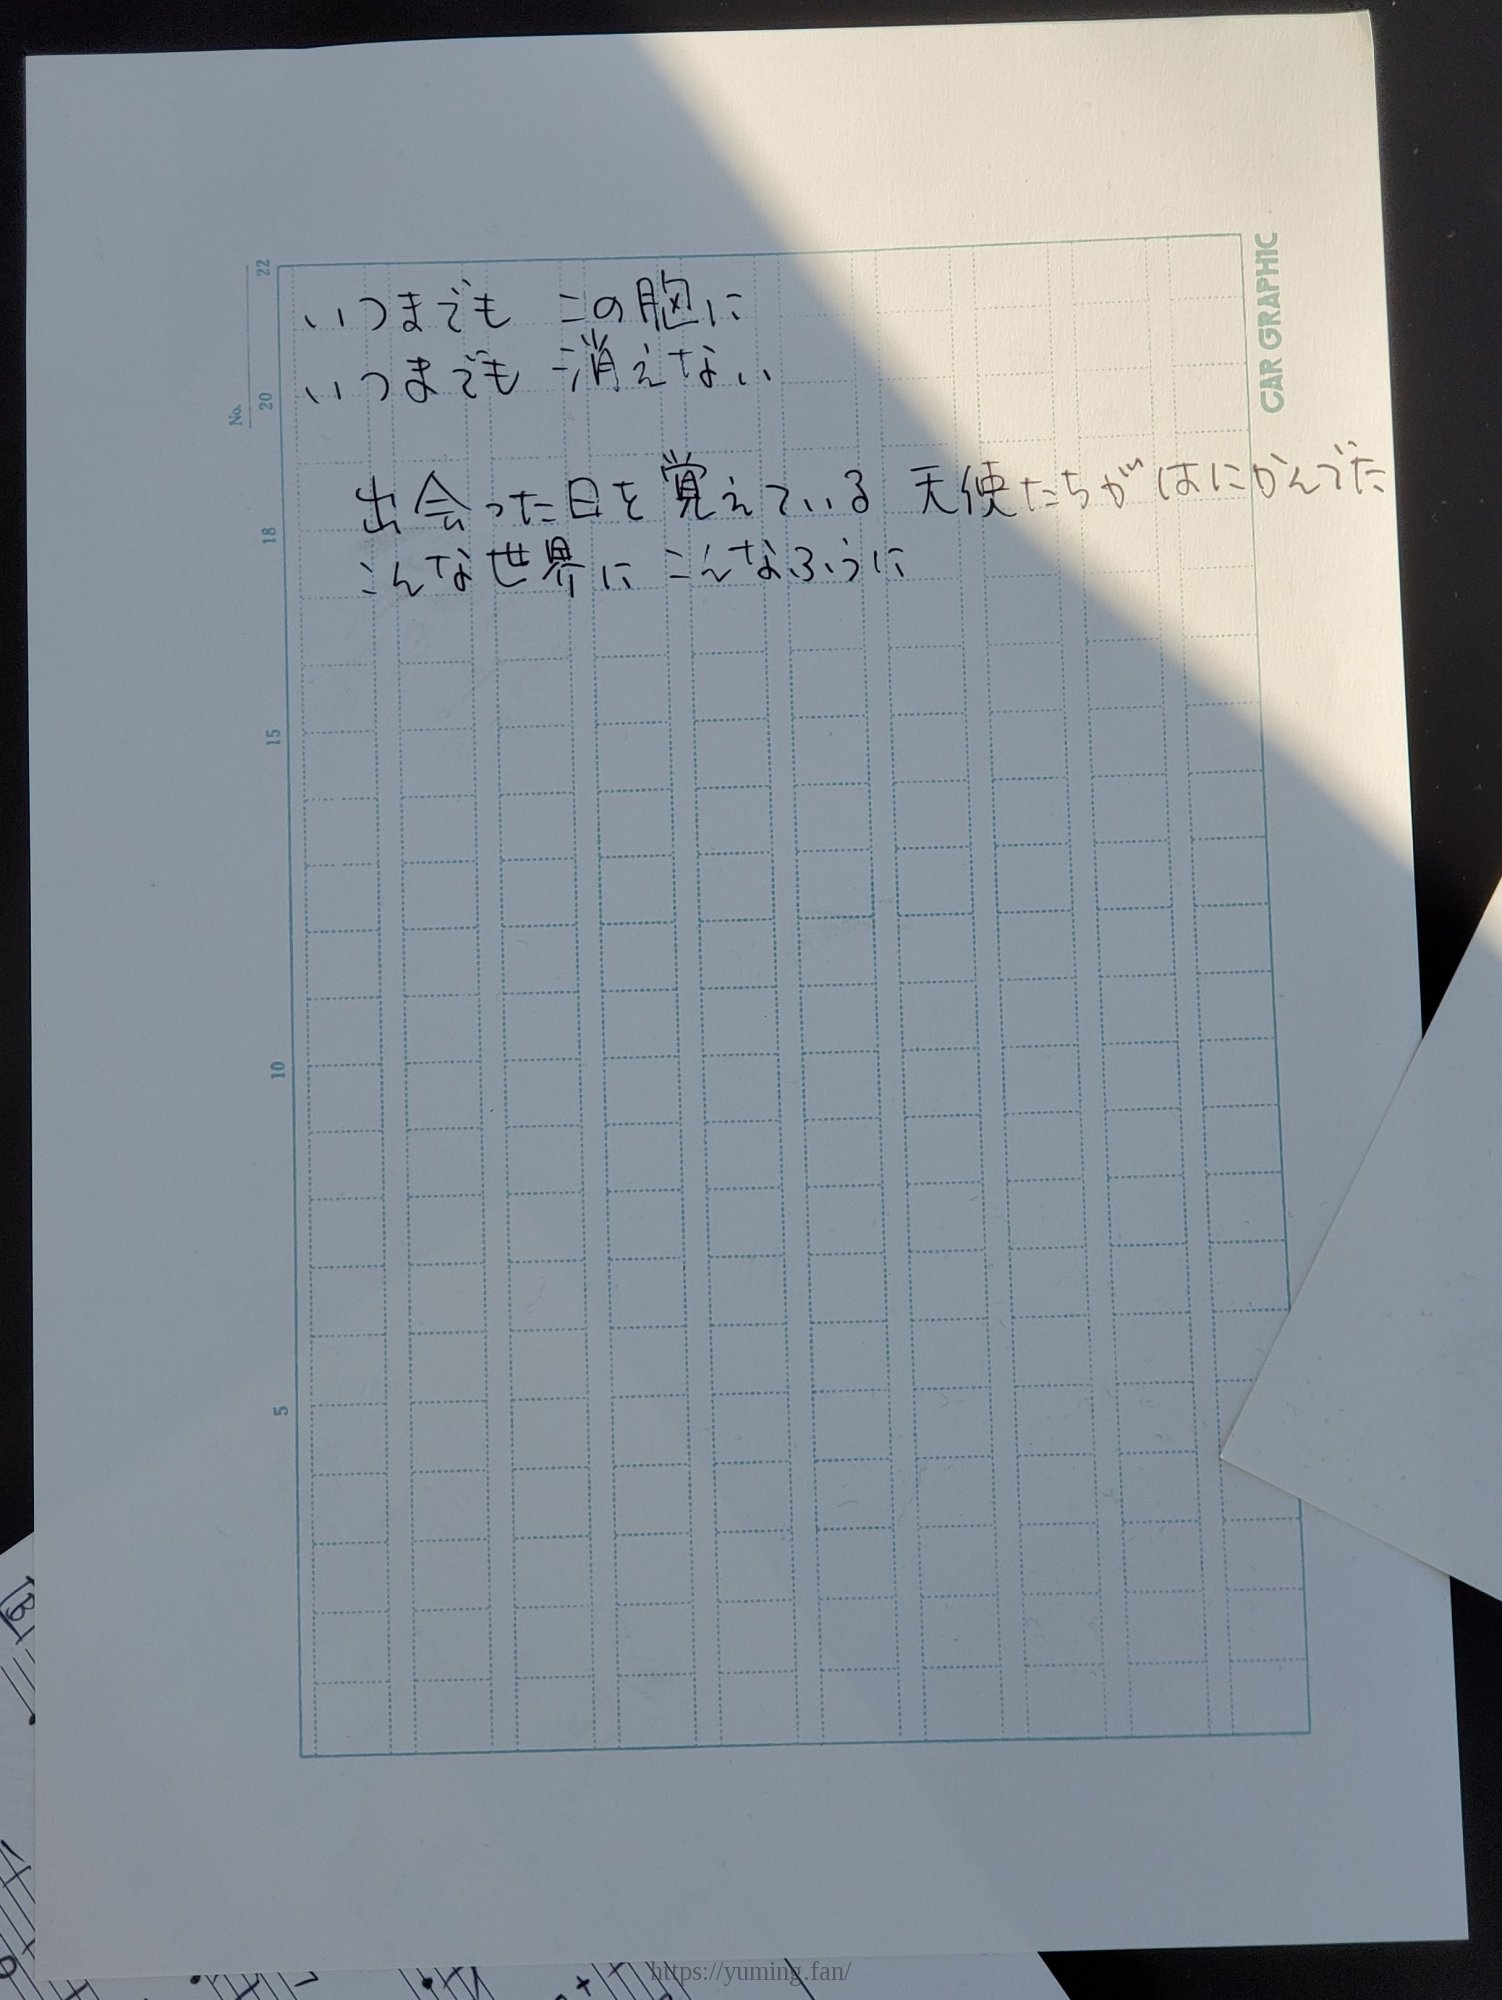 いつまでも この胸に
いつまでも 消えない
出会った日を覚えている 天使たちがはにかんでた
こんな世界に こんなふうに
CAR GRAPHIC
No.
22
20
18
15
10
5
https://yuming.fan/